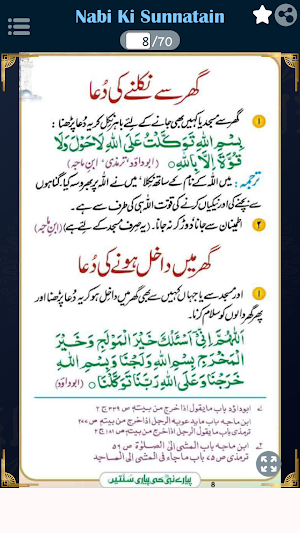 Nabi Ki Sunnatain
8/70
گھر سے نکلنے کی دُعا
۱ گھر سے مسجد یا کہیں بھی جانے کے لئے باہر نکل کر یہ دُعا پڑھنا :
بِسْمِ اللهِ تَوَكَّلْتُ عَلَى اللهِ لَاحَوْلَ وَلَا
قُوَّةَ اِلَّا بِاللهِ ○ (ابوداؤد، ترمذی، ابن ماجہ)
ترجمہ: میں اللہ کے نام کے ساتھ نکلا، میں نے اللہ پر بھروسہ کیا، گناہوں
سے بچنے کی اور نیکیاں کرنے کی قوت اللہ ہی کی طرف سے ہے۔
۲ اطمینان سے جانا دوڑ کر نہ جانا۔ (یہ صرف مسجد کے لئے ہے) (ابن ماجہ)
گھر میں داخل ہونے کی دُعا
۱ اور مسجد سے یا جہاں کہیں سے بھی گھر میں داخل ہو کر یہ دُعا پڑھنا اور
پھر گھر والوں کو سلام کرنا۔
اَللّٰهُمَّ اِنِّیْ اَسْئَلُكَ خَيْرَ الْمَوْلَجِ وَخَيْرَ
الْمَخْرَجِ بِسْمِ اللهِ وَلَجْنَا وَبِسْمِ اللهِ
خَرَجْنَا وَعَلَى اللهِ رَبِّنَا تَوَكَّلْنَا ○ (ابوداؤد)
ابوداؤد باب مایقول اذا خرج من بیتہ ص ۳۳۹ ج ۲
ابن ماجہ باب مایدعو بہ الرجل اذا خرج من بیتہ ص ۲۷۷
ترمذی باب مایقول الرجل اذا خرج من بیتہ ص ۱۸۱ ج ۲
ابن ماجہ باب المشی الی الصلوٰۃ ص ۵۶
ترمذی ص ۷۵ باب ماجاء فی المشی الی المساجد
پیارے نبی کی پیاری سنتیں
8